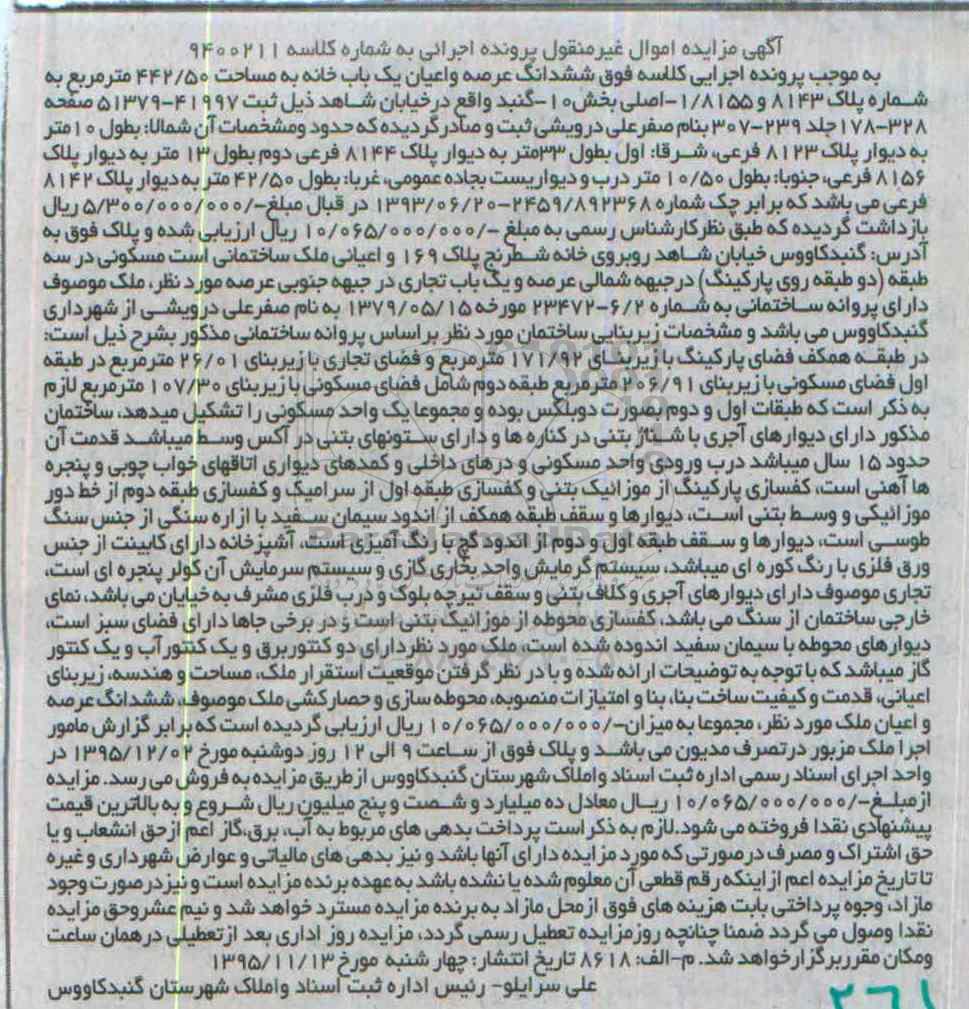 آگهی مزایده اموال غیرمنقول پرونده اجرائی به شماره کلاسه ۹۴۰۰۲۱۱
به موجب پرونده اجرایی کلاسه فوق ششدانگ عرصه واعیان یک باب خانه به مساحت ۴۴۲/۵۰ مترمربع به
شماره پلاک ۸۱۴۳ و ۱/۸۱۵۵-اصلی بخش۱۰-گنبد واقع درخیابان شاهد ذیل ثبت ۴۱۹۹۷-۵۱۳۷۹ صفحه
۳۲۸-۱۷۸ جلد ۲۳۹-۳۰۷ بنام صفرعلی درویشی ثبت و صادر گردیده که حدود ومشخصات آن شمالا: بطول ۱۰متر
به دیوار پلاک ۸۱۲۳ فرعی، شرقا: اول بطول ۳۳متر به دیوار پلاک ۸۱۴۴ فرعی دوم بطول ۱۳ متر به دیوار پلاک
۸۱۵۶ فرعی، جنوبا: بطول ۱۰/۵۰ متر درب و دیواریست بجاده عمومی، غربا: بطول ۴۲/۵۰ متر به دیوار پلاک ۸۱۴۲
فرعی می باشد که برابر چک شماره ۲۴۵۹/۸۹۲۳۶۸-۱۳۹۳/۰۶/۲۰ در قبال مبلغ-/۵/۳۰۰/۰۰۰/۰۰۰ ریال
بازداشت گردیده که طبق نظرکارشناس رسمی به مبلغ -/۱۰/۰۶۵/۰۰۰/۰۰۰ ریال ارزیابی شده و پلاک فوق به
آدرس: گنبدکاووس خیابان شاهد روبروی خانه شطرنج پلاک ۱۶۹ و اعیانی ملک ساختمانی است مسکونی در سه
طبقه (دو طبقه روی پارکینگ) درجبهه شمالی عرصه و یک باب تجاری در جبهه جنوبی عرصه مورد نظر، ملک موصوف
دارای پروانه ساختمانی به شماره ۶/۲-۲۳۴۷۲ مورخه ۱۳۷۹/۰۵/۱۵ به نام صفرعلی درویشی از شهرداری
گنبدکاووس می باشد و مشخصات زیربنایی ساختمان مورد نظر براساس پروانه ساختمانی مذکور بشرح ذیل است:
در طبقه همکف فضای پارکینگ با زیربنای ۱۷۱/۹۲ مترمربع و فضای تجاری با زیربنای ۲۶/۰۱ مترمربع در طبقه
اول فضای مسکونی با زیربنای ۲۰۶/۹۱ مترمربع طبقه دوم شامل فضای مسکونی با زیربنای ۱۰۷/۳۰ مترمربع لازم
به ذکر است که طبقات اول و دوم بصورت دوبلکس بوده و مجموعا یک واحد مسکونی را تشکیل میدهد، ساختمان
مذکور دارای دیوارهای آجری با شناژ بتنی در کناره ها و دارای ستونهای بتنی در آکس وسط میباشد قدمت آن
حدود ۱۵ سال میباشد درب ورودی واحد مسکونی و درهای داخلی و کمدهای دیواری اتاقهای خواب چوبی و پنجره
ها آهنی است، کفسازی پارکینگ از موزائیک بتنی و کفسازی طبقه اول از سرامیک و کفسازی طبقه دوم از خط دور
موزائیکی و وسط بتنی است، دیوارها و سقف طبقه همکف از اندود سیمان سفید با ازاره سنگی از جنس سنگ
طوسی است، دیوارها و سقف طبقه اول و دوم از اندود گچ با رنگ آمیزی است، آشپزخانه دارای کابینت از جنس
ورق فلزی با رنگ کوره ای میباشد، سیستم گرمایش واحد بخاری گازی و سیستم سرمایش آن کولر پنجره ای است،
تجاری موصوف دارای دیوارهای آجری و کلاف بتنی و سقف تیرچه بلوک و درب فلزی مشرف به خیابان می باشد، نمای
خارجی ساختمان از سنگ می باشد، کفسازی محوطه از موزائیک بتنی است و در برخی جاها دارای فضای سبز است،
دیوارهای محوطه با سیمان سفید اندوده شده است، ملک مورد نظردارای دو کنتوربرق و یک کنتور آب و یک کنتور
گاز میباشد که با توجه به توضیحات ارائه شده و با در نظر گرفتن موقعیت استقرار ملک، مساحت و هندسه، زیربنای
اعیانی، قدمت و کیفیت ساخت بنا، بنا و امتیازات منصوبه، محوطه سازی و حصارکشی ملک موصوف، ششدانگ عرصه
و اعیان ملک مورد نظر، مجموعا به میزان-/۱۰/۰۶۵/۰۰۰/۰۰۰ ریال ارزیابی گردیده است که برابر گزارش مامور
اجرا ملک مزبور درتصرف مدیون می باشد و پلاک فوق از ساعت ۹ الی ۱۲ روز دوشنبه مورخ ۱۳۹۵/۱۲/۰۲ در
واحد اجرای اسناد رسمی اداره ثبت اسناد واملاک شهرستان گنبدکاووس از طریق مزایده به فروش می رسد. مزایده
از مبلغ-/۱۰/۰۶۵/۰۰۰/۰۰۰ ریال معادل ده میلیارد و شصت و پنج میلیون ریال شروع و به بالاترین قیمت
پیشنهادی نقدا فروخته می شود.لازم به ذکر است پرداخت بدهی های مربوط به آب، برق،گاز اعم ازحق انشعاب و یا
حق اشتراک و مصرف درصورتی که مورد مزایده دارای آنها باشد و نیز بدهی های مالیاتی و عوارض شهرداری و غیره
تا تاریخ مزایده اعم از اینکه رقم قطعی آن معلوم شده یا نشده باشد به عهده برنده مزایده است و نیزدرصورت وجود
مازاد، وجوه پرداختی بابت هزینه های فوق ازمحل مازاد به برنده مزایده مسترد خواهد شد و نیم عشروحق مزایده
نقدا وصول می گردد ضمنا چنانچه روزمزایده تعطیل رسمی گردد، مزایده روز اداری بعد ازتعطیلی درهمان ساعت
ومکان مقرربرگزارخواهد شد. م-الف: ۸۶۱۸ تاریخ انتشار: چهارشنبه مورخ ۱۳۹۵/۱۱/۱۳
علی سرایلو- رئیس اداره ثبت اسناد واملاک شهرستان گنبدکاووس
۲۶۱